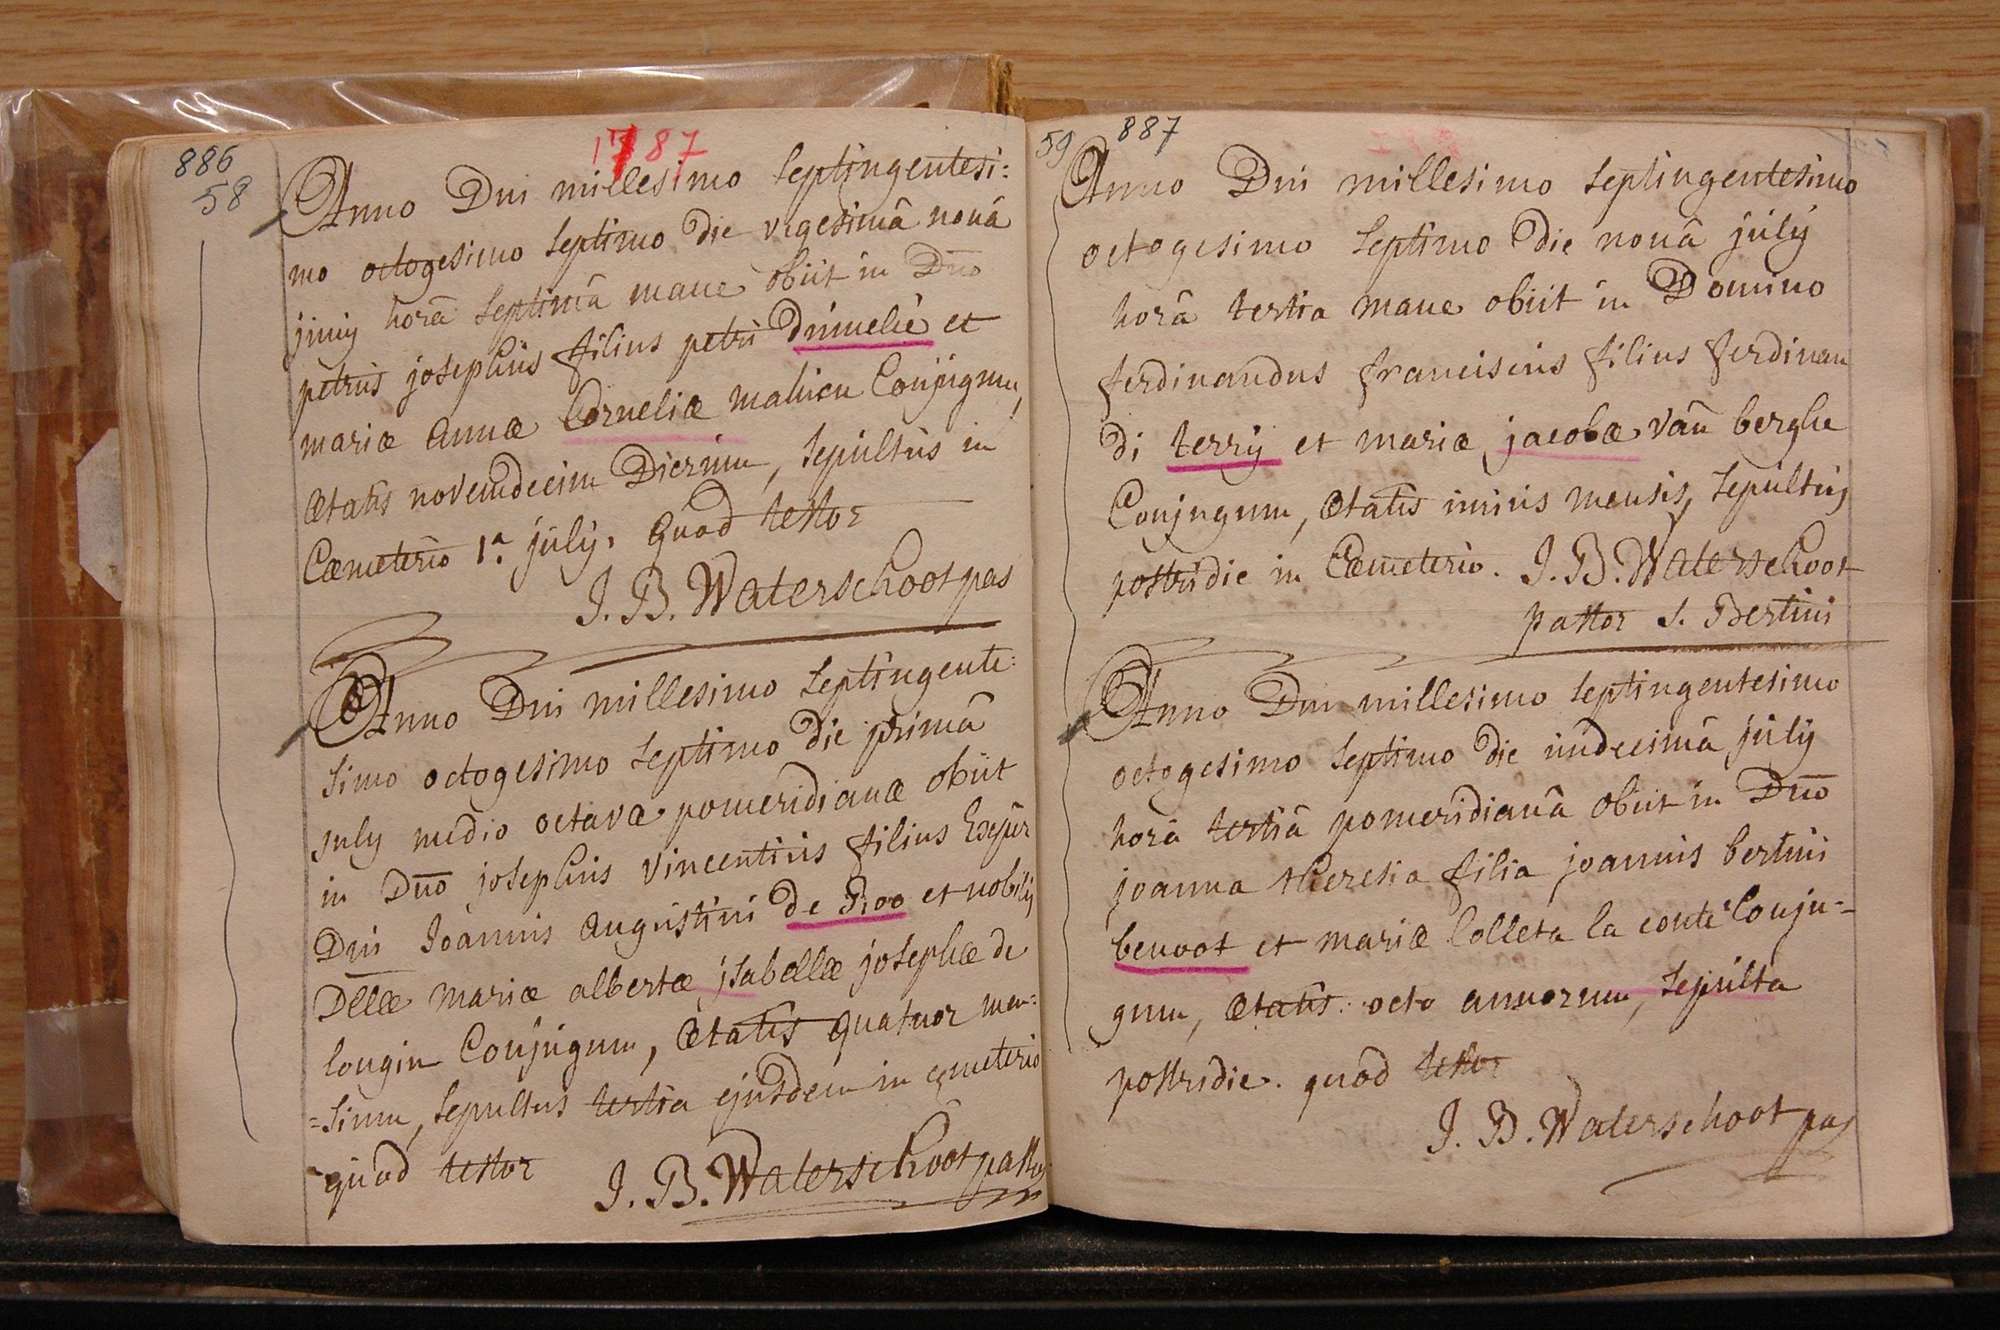 886
58
1787
Anno Dni millesimo septingentesi:
mo octogesimo septimo die vigesimâ nonâ
junij horâ septimâ mane obiit in Dno
petrus josephus filius petri et
mariæ annæ Corneliæ mahieu Conjugum,
ætatis novemdecim Dierum, sepultus in
Cæmeterio 1ª july. quod testor
J. B. Waterschoot pas
Anno Dni millesimo septingente:
simo octogesimo septimo die primâ
july medio octavæ pomeridianæ obiit
in Dno josephus vincentius filius
Dni Joannis augustini de Roo et nobilis
Dllæ mariæ albertæ jsabellæ josephæ de
longin Conjugum, ætatis quatuor men:
=sium, sepultus tertia ejusdem in cemeterio
quod testor J. B. Waterschoot pastor
59 887
Anno Dni millesimo septingentesimo
octogesimo septimo die nonâ july
horâ tertia mane obiit in Domino
ferdinandus franciscus filius ferdinan
di terrij et mariæ jacobæ van berghe
Conjugum, ætatis unius mensis, sepultus
postridie in Cæmeterio. J. B. Waterschoot
pastor S. Bertini
Anno Dni millesimo septingentesimo
octogesimo septimo die undecimâ july
horâ tertiâ pomeridianâ obiit in Dno
joanna theresia filia joannis bertini
benoot et mariæ Colleta la conte Conju=
gum, ætatis octo annorum, sepulta
postridie. quod testor
J. B. Waterschoot pas